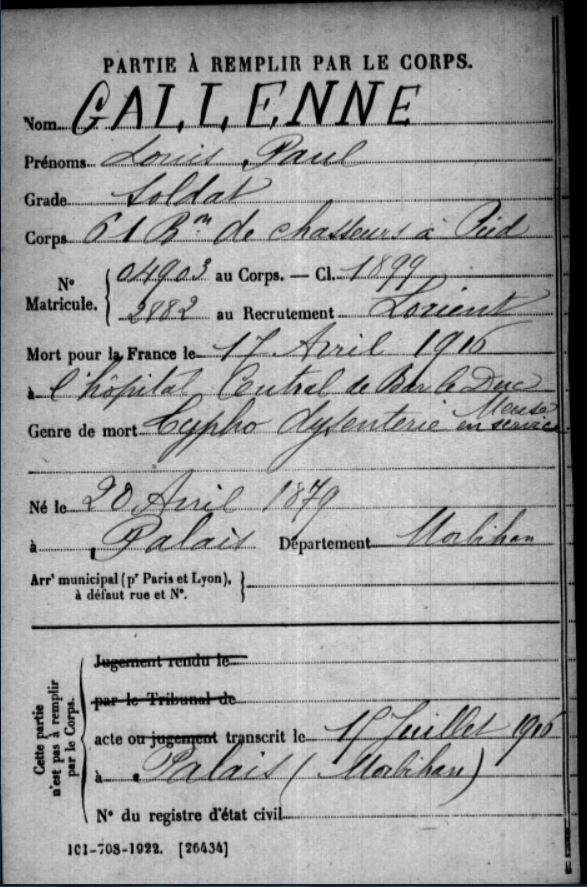 PARTIE À REMPLIR PAR LE CORPS.
Nom GALLENNE
Prénoms Louis Paul
Grade Soldat
Corps 61 Bon de chasseurs à Pied
N° Matricule. { 04903 au Corps. — Cl. 1899
2882 au Recrutement Lorient
Mort pour la France le 17 Avril 1916
à l'hôpital Central de Bar le Duc
Meuse
Genre de mort Typho dysenterie en service
Né le 20 Avril 1879
à Palais Département Morbihan
Arrt municipal (pr Paris et Lyon), à défaut rue et N°. }
Cette partie n'est pas à remplir par le Corps.
Jugement rendu le
par le Tribunal de
acte ou jugement transcrit le 15 Juillet 1916
à Palais (Morbihan)
N° du registre d'état civil
ICI-708-1922. [26434]